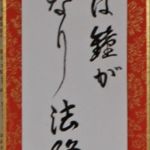 は鐘が
なり法